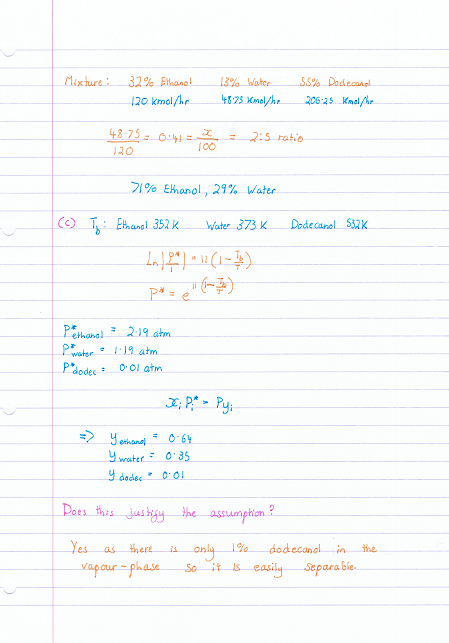 Mixture: 32% Ethanol 13% Water 55% Dodecanol
120 kmol/hr 48.75 kmol/hr 206.25 kmol/hr
48.75/120 = 0.41 = x/100 = 2:5 ratio
71% Ethanol, 29% Water
(c) T_b: Ethanol 352 K Water 373 K Dodecanol 532K
Ln|P*/1| = 11(1 - T_b/T)
P* = e^11(1 - T_b/T)
P*ethanol = 2.19 atm
P*water = 1.19 atm
P*dodec = 0.01 atm
x_i P_i* = Py_i
=> y ethanol = 0.64
y water = 0.35
y dodec = 0.01
Does this justify the assumption?
Yes as there is only 1% dodecanol in the
vapour-phase so it is easily separable.